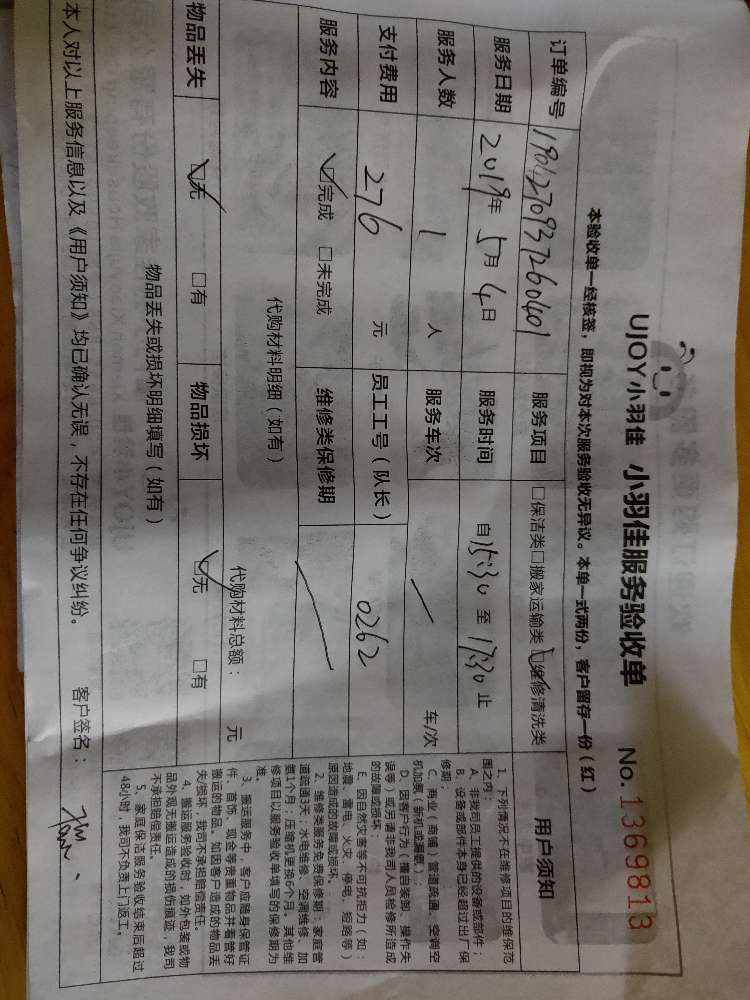 UJOY小羽佳 小羽佳服务验收单 No. 1369813
本验收单一经核签，即视为对本次服务验收无异议。本单一式两份，客户留存一份（红）
订单编号 1904270937260401 服务项目 □保洁类□搬家运输类☑维修清洗类
服务日期 2019年 5月 4日 服务时间 自15:30 至 17:30 止
服务人数 1 人 服务车次 / 车/次
支付费用 276 元 员工工号（队长） 0262
服务内容 ☑完成 □未完成 维修类保修期 /
代购材料明细（如有）
代购材料总额： 元
物品丢失 ☑无 □有 物品损坏 ☑无 □有
物品丢失或损坏明细填写（如有）
本人对以上服务信息以及《用户须知》均已确认无误，不存在任何争议纠纷。 客户签名：
用户须知
1、下列情况不在维修项目的维保范
围之内：
A、非我司员工提供的设备或部件；
B、设备或部件本身已经超过出厂保
修期；
C、商业（商铺）管道疏通、空调空
机加氟（新机或漏氟）；
D、因客户行为（擅自装卸、操作失
误等）或另请非我司人员检修所造成
的故障或损坏
E、因自然灾害等不可抗拒力（如：
地震、雷电、火灾、停电、短路等）
原因造成的故障或损坏。
2、维修类服务免费保修期：家庭管
道疏通3天；水电维修、空调维修、加
氨1个月；压缩机更换6个月。其他维
修项目以服务验收单填写的保修期为
准。
3、搬运服务中，客户应随身保管证
件、首饰、现金等贵重物品并看管好
搬运的物品。如因客户造成的物品丢
失/损坏，我司不承担赔偿责任。
4、搬运服务验收时，如外包装或物
品外观无搬运造成的损伤痕迹，我司
不承担赔偿责任。
5、家庭保洁服务验收结束后超过
48小时，我司不负责上门返工。